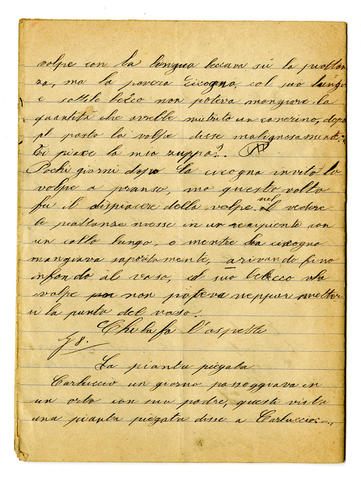 volpe con la lingua leccava sù la pietan
za, ma la povera cicogna, col suo lungo
e sottile becco non poteva mangiare la
quantità che avrebbe nutrito un canerino, dopo
il pasto la volpe disse malignosamente:
Ti piace la mia zuppa?..
Pochi giorni dopo la cicogna invitò la
volpe a pranso, ma questa volta
fu il dispiacere della volpe nel vedere
le piattanza messe in un recipiente con
un collo lungo, e mentre la cicogna
mangiava saporitamente, arivando fino
infondo al vaso, col suo becco la
volpe non poteva neppur metter
vi la punta del vaso.
Chi la fa l'aspetti
8.
La pianta piegata
Carluccio un giorno passeggiava in
un orto con suo padre, questi vista
una pianta piegata disse a Carluccio: